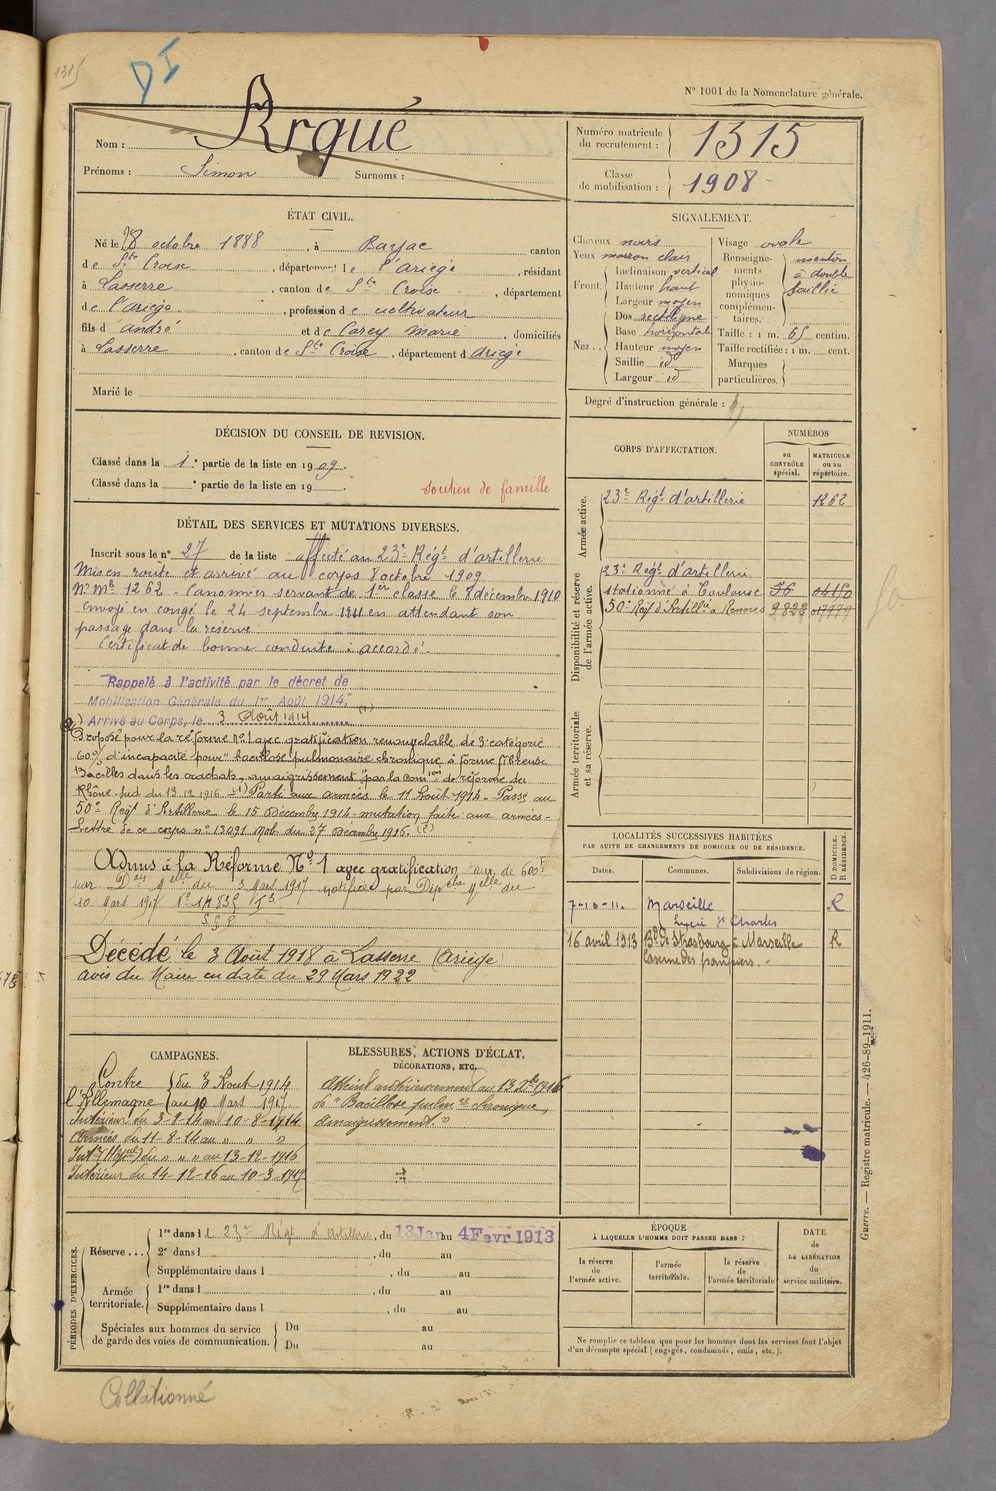 1315
DI
N° 1001 de la Nomenclature générale.
Nom : Arqué
Prénoms : Simon Surnoms :
Numéro matricule du recrutement : 1315
Classe de mobilisation : 1908
ÉTAT CIVIL.
Né le 28 octobre 1888, à Barjac canton
de Ste Croix, département de l'ariège, résidant
à Lasserre, canton de Ste Croix, département
de l'ariège, profession de cultivateur
fils d'André et de Carey Marie, domiciliés
à Lasserre, canton de Ste Croix, département d'Ariège
Marié le
SIGNALEMENT.
Cheveux noirs
Yeux marron clair
Front. Inclinaison vertical
Hauteur haut
Largeur moyen
Nez.. Dos rectiligne
Base horizontale
Hauteur moyen
Saillie id
Largeur id
Visage ovale
Renseignements physionomiques complémentaires. menton à double saillie
Taille : 1 m. 65 centim.
Taille rectifiée : 1 m. cent.
Marques particulières.
Degré d'instruction générale :
DÉCISION DU CONSEIL DE REVISION.
Classé dans la 1e partie de la liste en 1909.
Classé dans la e partie de la liste en 19
soutien de famille
DÉTAIL DES SERVICES ET MUTATIONS DIVERSES.
Inscrit sous le n° 27 de la liste affecté au 23e Régt d'artillerie
Mis en route et arrivé au corps 8 octobre 1909
No Mle 1262. Canonnier servant de 1ère classe le 8 décembre 1910
Envoyé en congé le 24 septembre 1911 en attendant son
passage dans la réserve
Certificat de bonne conduite : accordé.
Rappelé à l'activité par le décret de
Mobilisation Générale du 1er Août 1914. (1)
Arrivé au Corps, le 3 Août 1914
Proposé pour la réforme No 1 avec gratification renouvelable de 3e catégorie
60% d'incapacité pour "bacillose pulmonaire chronique à forme fibreuse
Bacilles dans les crachats, amaigrissement" par la comion de réforme du
Rhône-Sud du 13.12.1916 - (1) Parti aux armées le 11 Août 1914. Passé au
50e Régt d'Artillerie le 15 Décembre 1914 mutation faite aux armées -
Lettre de ce corps no 13091 Mob. du 27 Décembre 1916. (2)
Admis à la Réforme No 1 avec gratification de 600F
par Don Melle du 3 Mars 1917 notifiée par Dépche Melle du
10 Mars 1917
Décédé le 3 Août 1918 à Lasserre (Ariège)
avis du Maire en date du 29 Mars 1922
CORPS D'AFFECTATION.
NUMÉROS
au CONTRÔLE spécial.
MATRICULE ou au répertoire.
Armée active.
23e Régt d'artillerie 1262
Disponibilité et réserve de l'armée active.
23e Régt d'artillerie
stationné à Toulouse
50e Régt d'Artillie à Rennes 9822
Armée territoriale et sa réserve.
LOCALITÉS SUCCESSIVES HABITÉES
PAR SUITE DE CHANGEMENTS DE DOMICILE OU DE RÉSIDENCE.
Dates. Communes. Subdivisions de région. D DOMICILE. R RÉSIDENCE.
7-10-11. Marseille R
Lycée St Charles
16 avril 1913 Bd de Strasbourg à Marseille R
Caserne des pompiers.
CAMPAGNES.
Contre l'Allemagne du 3 Août 1914
au 10 Mars 1917
Intérieur du 3-8-14 au 10-8-1914
Armées du 11-8-14 au " " "
Intr (Hôpal) du " " " au 13-12-1916
Intérieur du 14-12-16 au 10-3-1917
BLESSURES, ACTIONS D'ÉCLAT, DÉCORATIONS, ETC.
Atteint antérieurement au 13 Xbre 1916
de "Bacillose pulmre chronique,
amaigrissement."
PÉRIODES D'EXERCICES.
Réserve... 1re dans le 23e Régt d'Artillerie, du 18 Jan au 4 Fevr 1913
2e dans l , du au
Supplémentaire dans l , du au
Armée territoriale. 1re dans l , du au
Supplémentaire dans l , du au
Spéciales aux hommes du service de garde des voies de communication. Du au
Du au
ÉPOQUE
À LAQUELLE L'HOMME DOIT PASSER DANS :
la réserve de l'armée active.
l'armée territoriale.
la réserve de l'armée territoriale
DATE de LA LIBÉRATION du service militaire.
Ne remplir ce tableau que pour les hommes dont les services font l'objet
d'un décompte spécial (engagés, condamnés, omis, etc.).
Guerre. — Registre matricule. — 426-89-1911.
Collationné